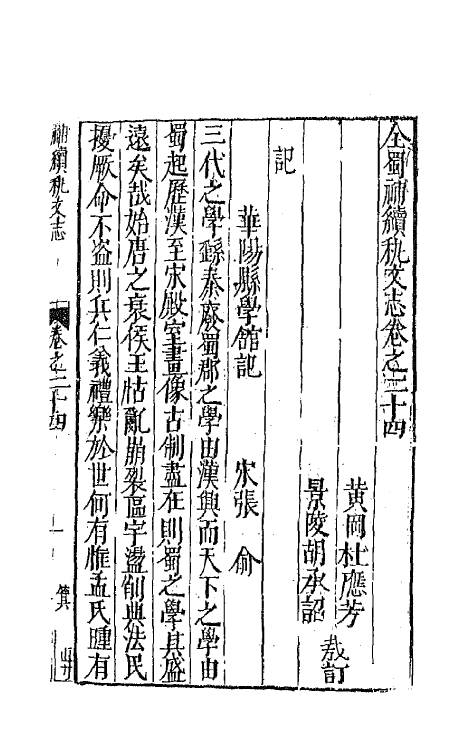 全蜀補續秇文志卷之三十四
黃岡杜應芳
景陵胡承詔
裁訂
記
華陽縣學舘記
宋張俞
三代之學繇秦廢蜀郡之學由漢興而天下之學由
蜀起歷漢至宋殿室畫像古制盡在則蜀之學其盛
遠矣哉始唐之衰侯王怙亂崩裂區宇盪剗典法民
擾厥命不盜則兵仁義禮樂於世何有惟孟氏踵有
補續秇文志
卷之三十四
一